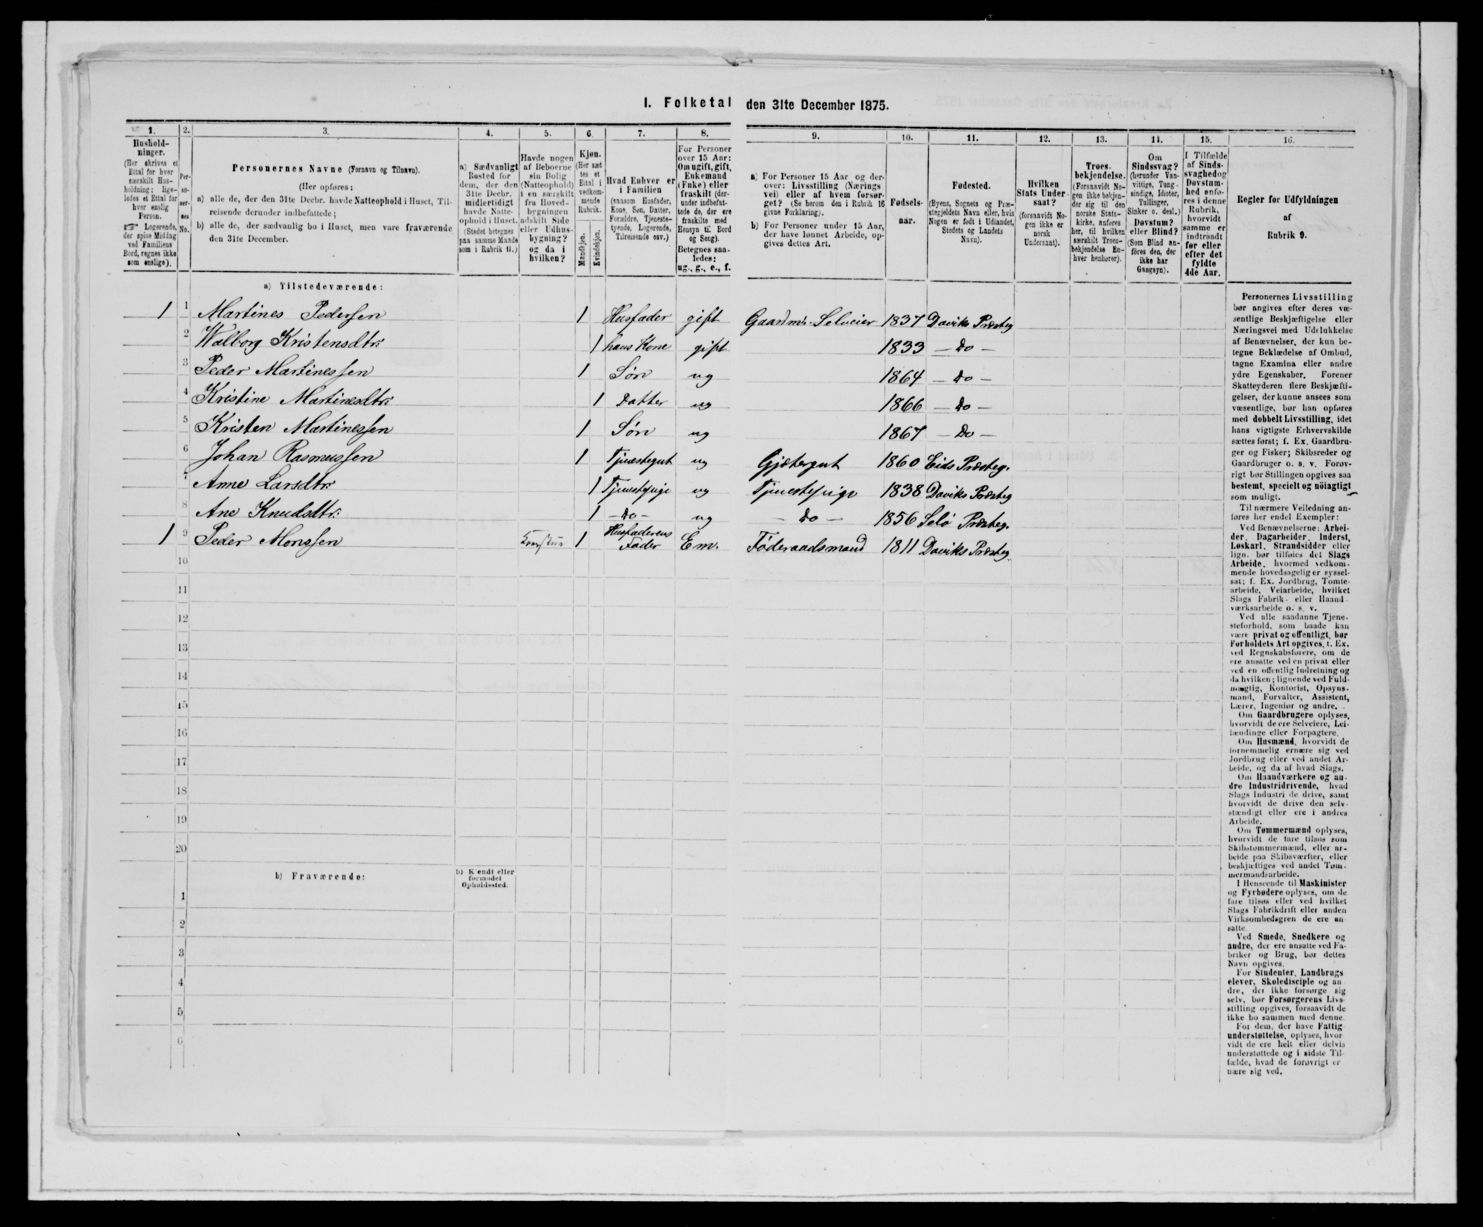 I. Folketal den 31te December 1875.
1. 2. 3. 4. 5. 6. 7. 8. 9. 10. 11. 12. 13. 14. 15. 16.
Hushold-
ninger.
(Her skrives et
Ettal for hver
særskilt Hus-
holdning; lige-
ledes et Ettal for
hver enslig
Person.
☞ Logerende,
der spise Middag
ved Familiens
Bord, regnes ikke
som enslige).
Per-
so-
ner-
nes
No.
Personernes Navne (Fornavn og Tilnavn).
(Her opføres:
a) alle de, der den 31te Decbr. havde Natteophold i Huset, Til-
reisende derunder indbefattede;
b) alle de, der sædvanlig bo i Huset, men vare fraværende
den 31te December.
a) Sædvanligt
Bosted for
dem, der den
31te Decbr.
midlertidigt
havde Natte-
ophold i Huset.
(Stedet betegnes
paa samme Maade
som i Rubrik 11.)
Havde nogen
af Beboerne
sin Bolig
(Natteophold)
i en særskilt
fra Hoved-
bygningen
adskilt Side
eller Udhus-
bygning?
og da i
hvilken?
Kjøn.
(Her sæt-
tes et
Ettal i
vedkom-
mende
Rubrik.
Mandkjøn.
Kvindekjøn.
Hvad Enhver er
i Familien
(saasom Husfader,
Kone, Søn, Datter,
Forældre, Tjeneste-
tyende, Logerende,
Tilreisende osv.)
For Personer
over 15 Aar:
Om ugift, gift,
Enkemand
(Enke) eller
fraskilt (der-
under indbefat-
tede de, der ere
fraskilte med
Hensyn til Bord
og Seng).
Betegnes saa-
ledes:
ug., g., e., f.
a) For Personer 15 Aar og der-
over: Livsstilling (Nærings
vei) eller af hvem forsør-
get? (Se herom den i Rubrik 16
givne Forklaring).
b) For Personer under 15 Aar,
der have lønnet Arbeide, op-
gives dettes Art.
Fødsels-
aar.
Fødested.
(Byens, Sognets og Præ-
stegjeldets Navn eller, hvis
Nogen er født i Udlandet,
Stedets og Landets
Navn).
Hvilken
Stats Under-
saat?
(forsaavidt No-
gen ikke er
norsk
Undersaat).
Troes-
bekjendelse.
(Forsaavidt No-
gen ikke bekjen-
der sig til den
norske Stats-
kirke, anføres
her, til hvilken
særskilt Troes-
bekjendelse En-
hver henhører).
Om
Sindssvag?
(herunder Van-
vittige, Tung-
sindige, Idioter,
Tullinger,
Sinker o. desl.)
Døvstum?
eller Blind?
(Som Blind an-
føres den, der
ikke har
Gangsyn).
I Tilfælde
af Sinds-
svaghed og
Døvstum-
hed anfø-
res i denne
Rubrik,
hvorvidt
samme er
indtraadt
før eller
efter det
fyldte
4de Aar.
Regler for Udfyldningen
af
Rubrik 9.
a) Tilstedeværende:
1 1 Martines Pedersen 1 Husfader gift Gaardmr. Selveier 1837 Daviks Præsteg
2 Walborg Kristensdtr: 1 hans Kone gift 1833 — Do —
3 Peder Martinessen 1 Søn ug 1864 — Do —
4 Kristine Martinesdtr: 1 Datter ug 1866 — Do —
5 Kristen Martinessen 1 Søn ug 1867 — Do —
6 Johan Rasmussen 1 Tjenestegut ug Gjætergut 1860 Eids Præsteg.
Anne Larsdtr: 1 Tjenestepige ug Tjenestepige 1838 Daviks Præsteg
8 Ane Knudsdtr: 1 — Do — ug — Do — 1856 Selø Præsteg.
1 9 Peder Monssen 1 Husfaderens Fader Em. Føderaadsmand 1811 Daviks Præsteg.
10
11
12
13
14
15
16
17
18
19
20
b) Fraværende:
b) Kjendt eller
formodet
Opholdssted.
1
2
3
4
5
6
Personernes Livsstilling
bør angives efter deres væ-
sentlige Beskjæftigelse eller
Næringsvei med Udelukkelse
af Benævnelser, der kun be-
tegne Beklædelse af Ombud,
tagne Examina eller andre
ydre Egenskaber. Forener
Skatteyderen flere Beskjæfti-
gelser, der kunne ansees som
væsentlige, bør han opføres
med dobbelt Livsstilling, idet
hans vigtigste Erhvervskilde
sættes først; f. Ex. Gaardbru-
ger og Fisker; Skibsreder og
Gaardbruger o. s. v. Forøv-
rigt bør Stillingen opgives saa
bestemt, specielt og nøiagtigt
som muligt.
Til nærmere Veiledning an-
føres her endel Exempler:
Ved Benævnelserne: Arbei-
der, Dagarbeider, Inderst,
Løskarl, Strandsidder eller
lign. bør tilføies det Slags
Arbeide, hvormed vedkom-
mende hovedsagelig er syssel-
sat; f. Ex. Jordbrug, Tomte-
arbeide, Veiarbeide, hvilket
Slags Fabrik- eller Haand-
værksarbeide o. s. v.
Ved alle saadanne Tjene-
steforhold, som baade kan
være privat og offentligt, bør
Forholdets Art opgives, f. Ex.
ved Regnskabsførere, om de
ere ansatte ved en privat eller
ved en offentlig Indretning og
da hvilken; lignende ved Fuld-
mægtig, Kontorist, Opsyns-
mand, Forvalter, Assistent,
Lærer, Ingeniør og andre.
Om Gaardbrugere oplyses,
hvorvidt de ere Selveiere, Lei-
lændinge eller Forpagtere.
Om Husmænd, hvorvidt de
fornemmelig ernære sig ved
Jordbrug eller ved andet Ar-
beide, og da af hvad Slags.
Om Haandværkere og an-
dre Industridrivende, hvad
Slags Industri de drive, samt
hvorvidt de drive den selv-
stændigt eller ere i andres
Arbeide.
Om Tømmermænd oplyses,
hvorvidt de fare tilsøs som
Skibstømmermænd, eller ar-
beide paa Skibsværfter, eller
beskjæftiges ved andet Tøm-
mermandsarbeide.
I Henseende til Maskinister
og Fyrbødere oplyses, om de
fare tilsøs eller ved hvilket
Slags Fabrikdrift eller anden
Virksomhedsgren de ere an-
satte.
Ved Smede, Snedkere og
andre, der ere ansatte ved Fa-
briker og Brug, bør dettes
Navn opgives.
For Studenter, Landbrugs
elever, Skoledisciple og an-
dre, der ikke forsørge sig
selv, bør Forsørgerens Livs-
stilling opgives, forsaavidt de
ikke bo sammen med denne.
For dem, der have Fattig
understøttelse, oplyses, hvor
vidt de ere helt eller delvis
understøttede og i sidste Til-
fælde, hvad de forøvrigt er
nære sig ved.